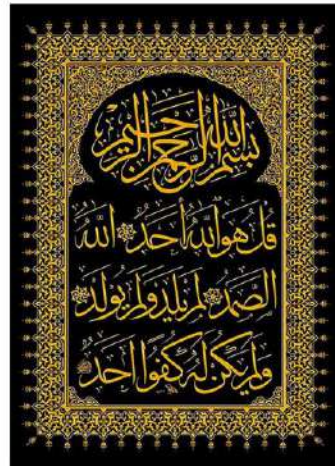 بسم الله الرحمن الرحيم
قُل هُوَ اللَّهُ أَحَدٌ اللَّهُ
الصَّمَدُ لَم يَلِد وَلَم يُولَد
وَلَم يَكُن لَهُ كُفُوًا أَحَدٌ